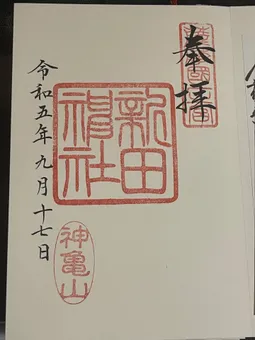 奉拝
新田神社
令和五年九月十七日
神亀山